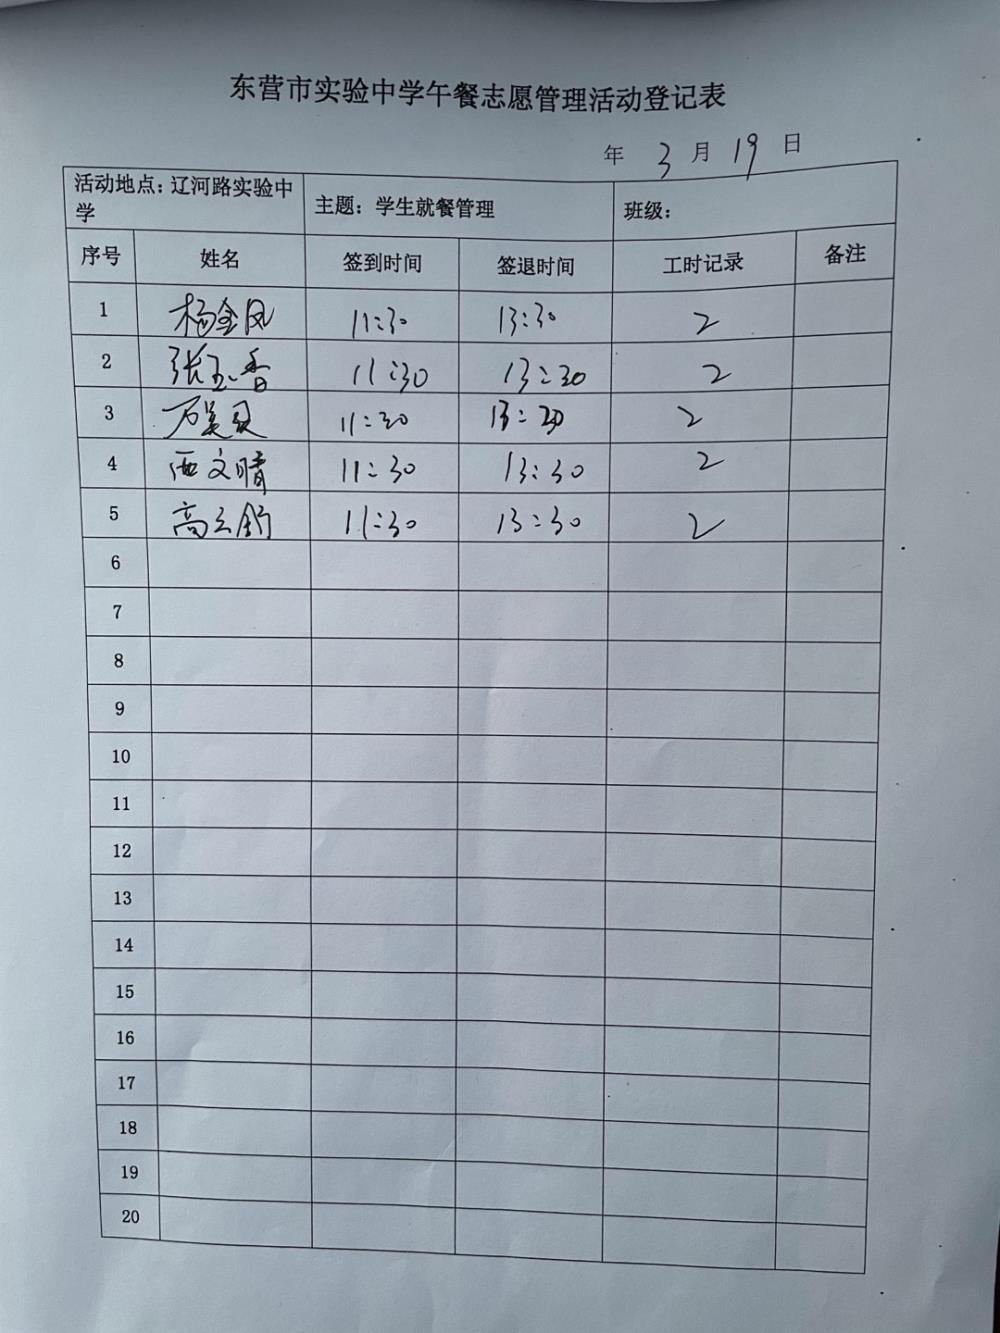 东营市实验中学午餐志愿管理活动登记表
年 3 月 19 日
活动地点：辽河路实验中学 主题：学生就餐管理 班级：
序号 姓名 签到时间 签退时间 工时记录 备注
1 杨金凤 11:30 13:30 2
2 张玉香 11:30 13:30 2
3 11:30 13:30 2
4 西文晴 11:30 13:30 2
5 高云舒 11:30 13:30 2
6
7
8
9
10
11
12
13
14
15
16
17
18
19
20